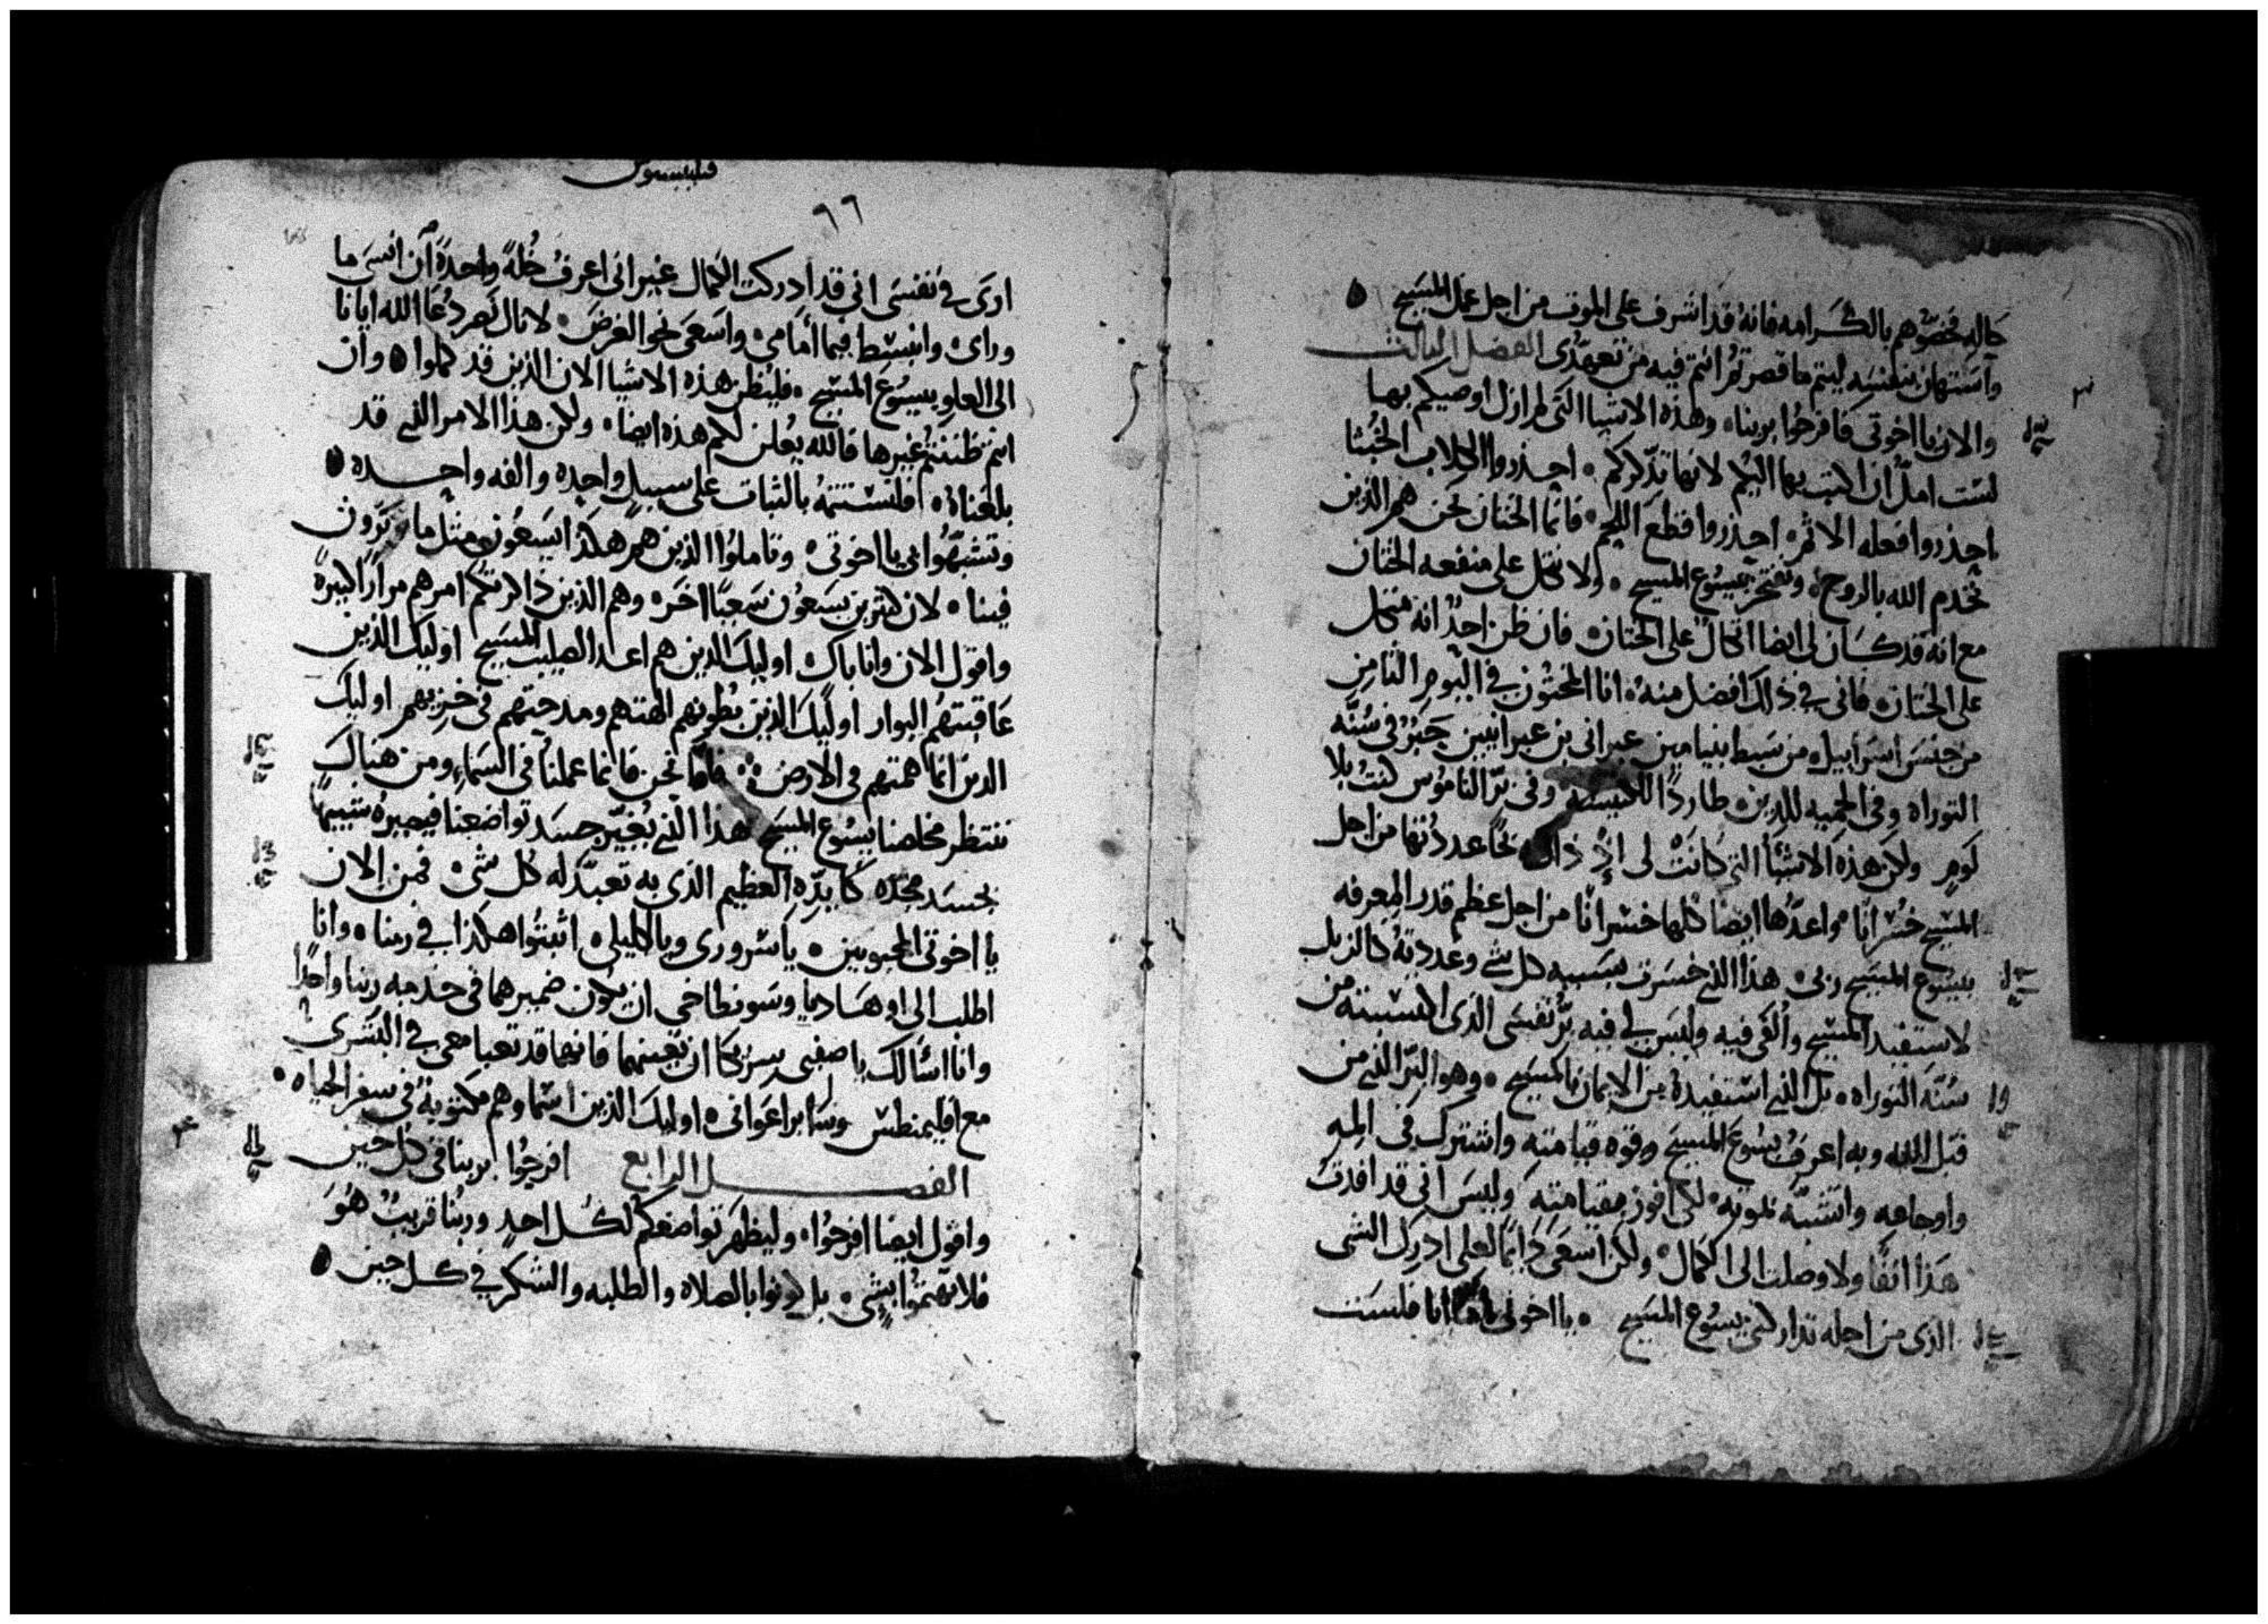 حاله فخصوهم بالكرامه فانه قد اشرف على الموت من اجل عمل المسيح
واستهان بنفسه ليتم ما قصرتم انتم فيه من تعهدى الفصل الثالث
والان يا اخوتى فافرحوا بربنا وهذه الاشيا التى لم ازل اوصيكم بها
لست امل ان اكتب بها اليكم لانها تذكركم احذروا الكلاب الخبثا
احذروا فعله الاثم احذروا قطع اللحم فانما الختان نحن هم الذين
نخدم الله بالروح ونفتخر بيسوع المسيح ولا نتكل على منفعه الختان
مع انه قد كان لى ايضا اتكال على الختان فان ظن احد انه متكل
على الختان فانى فى ذلك افضل منه انا المختون فى اليوم الثامن
من جنس اسراييل من سبط بنيامين عبرانى بن عبرانيين حبر فى سنه
التوراه وفى الحميه للدين طاردا للكنيسه وفى بر الناموس كنت بلا
لوم ولكن هذه الاشيا التى كانت لى اذ ذاك ربحا عددتها من اجل
المسيح خسرانا واعدها ايضا كلها خسرانا من اجل عظم قدر المعرفه
بيسوع المسيح ربى هذا الذى خسرت بسببه كل شى وعددته كالزبل
لاستفيد المسيح وألفى فيه وليس لى فيه بر نفسى الذى اكتسبته من
سنه التوراه بل الذى استفيده من الايمان بالمسيح وهو البر الذى من
قبل الله وبه اعرف يسوع المسيح وقوه قيامته واشترك فى المه
واوجاعه واتشبه بموته لكى افوز بقيامته وليس انى قد افدت
هذا انفا ولا وصلت الى الكمال ولكن اسعى دايما لعلى ادرك الشى
الذى من اجله تداركنى يسوع المسيح يا اخوتى انا فلست
فيلبسيوس
٦٦
ارى فى نفسى انى قد ادركت الكمال غير انى اعرف خله واحده ان انسى ما
وراى وانبسط فيما امامى واسعى نحو الغرض لانال دعا الله ايانا
الى العلو بيسوع المسيح فليظن هذه الاشيا الان الذين قد كملوا وان
انتم ظننتم غيرها فالله يعلن لكم هذه ايضا ولكن هذا الامر الذى قد
بلغناه فلنستتمه بالثبات على سبيل واحده والفه واحده
وتشبهوا بى يا اخوتى وتاملوا الذين هم هكذا يسعون مثل ما ترون
فينا لان كثيرين يسعون سعيا اخر وهم الذين ذاكرتكم امرهم مرارا كثيره
واقول الان وانا باك اوليك الذين هم اعدا لصليب المسيح اوليك الذين
عاقبتهم البوار اوليك الذين بطونهم الهتهم ومدحتهم فى خزيهم اوليك
الذين انما همتهم فى الارض فاما نحن فانما عملنا فى السما ومن هناك
ننتظر مخلصنا يسوع المسيح هذا الذى يغير جسد تواضعنا فيصيره شبيها
بجسد مجده كايده العظيم الذى به تعبد له كل شى فمن الان
يا اخوتى المحبوبين يا سرورى ويا اكليلى اثبتوا هكذا فى ربنا وانا
اطلب الى اوهساديا وسونطاخى ان يكون ضميرهما فى خدمه ربنا واحدا
وانا اسالك يا صفيى وشريكا ان تعينهما فانهما قد تعبا معى فى البشرى
مع اقليمنطس وساير اعوانى اوليك الذين اسماوهم مكتوبه فى سفر الحياه
الفصل الرابع افرحوا بربنا فى كل حين
واقول ايضا افرحوا وليظهر تواضعكم لكل احد وربنا قريب هو
فلا تهتموا بشى بل كونوا بالصلاه والطلبه والشكر فى كل حين